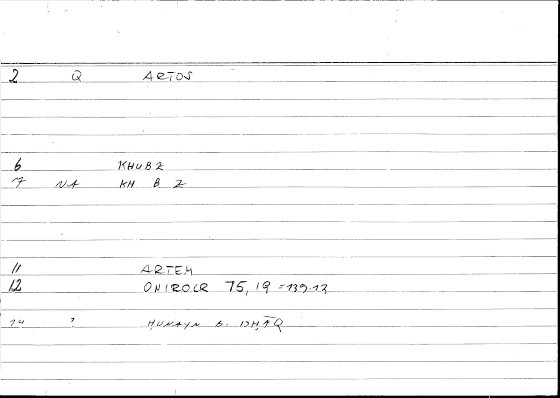 2 Q ARTOS
6 KHUBZ
7 NA KH B Z
11 ARTEM
12 ONIROCR 75, 19 = 139.13
14 ? ḤUNAYN B. ISḤĀQ